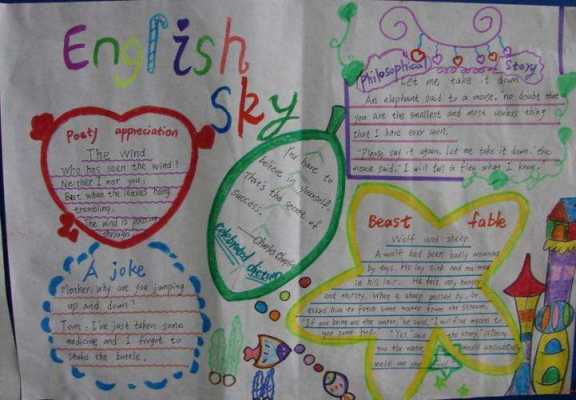 English
Sky
Poety appreciation
The Wind
Who has seen the wind?
Neither I nor you,
But when the leaves hang
trembling.
The wind is
through
A joke
Mother: Why are you jumping
up and down?
Tom: I've just taken some
medicine and I forgot to
shake the bottle.
You have to
believe in yourself.
That's the secret of
success.
—Charlie Chaplin
celebrated dictum
Philosophical Story
Let me take it down
An elephant said to a mouse, no doubt that
you are the smallest and most useless thing
that I have ever seen.
"Please, say it again. Let me take it down." the
mouse said. "I will tell a flea what I know."
Beast fable
Wolf and sheep
A wolf had been badly wounded
by dogs. He lay sick and
in his lair. He felt very hungry
and thirsty. When a sheep passed by, he
asked him to fetch some water from the stream.
"If you bring me the water," he said, "I will find means to
get some food."
"Yes," said the sheep,
you the water,
make me your